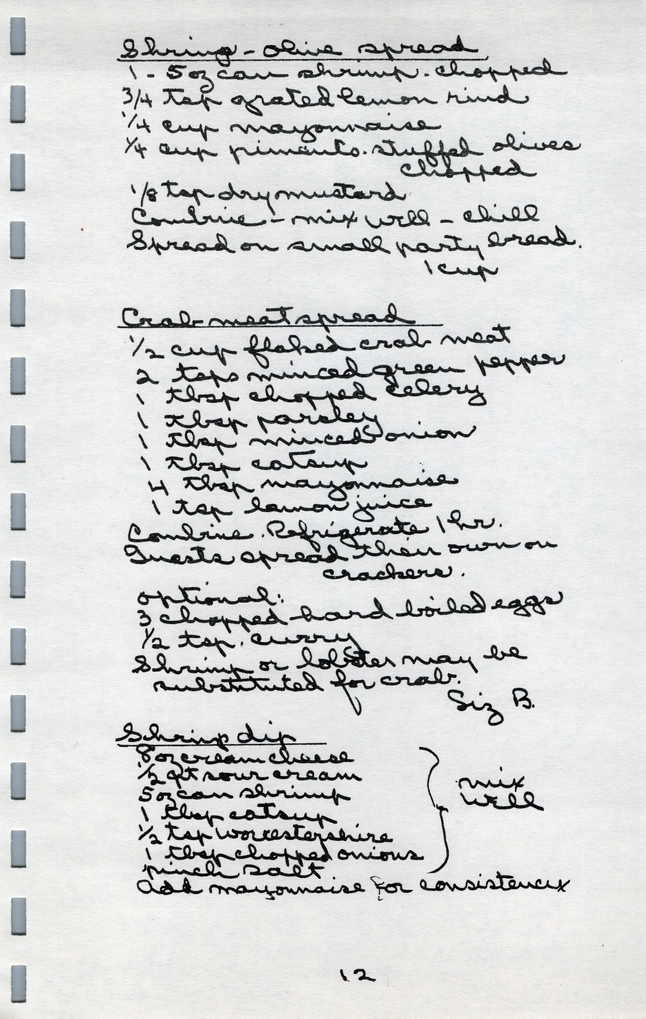 Shrimp - olive spread
1 - 5 oz can shrimp - chopped
3/4 tsp grated lemon rind
1/4 cup mayonnaise
1/4 cup pimento-stuffed olives
chopped
1/8 tsp dry mustard
Combine - mix well - chill
Spread on small party bread.
1 cup
Crab meat spread
1/2 cup flaked crab meat
2 tsps minced green pepper
1 tbsp chopped celery
1 tbsp parsley
1 tbsp minced onion
1 tbsp catsup
4 tbsp mayonnaise
1 tsp lemon juice
Combine. Refrigerate 1 hr.
Guests spread their own on
crackers.
optional:
3 chopped hard boiled eggs
1/2 tsp. curry
Shrimp or lobster may be
substituted for crab.
Siz B.
Shrimp dip
8 oz cream cheese
1/2 pt sour cream
5 oz can shrimp
1 tbsp catsup
1/2 tsp worcestershire
1 tbsp chopped onions
pinch salt
mix
well
add mayonnaise for consistency
12